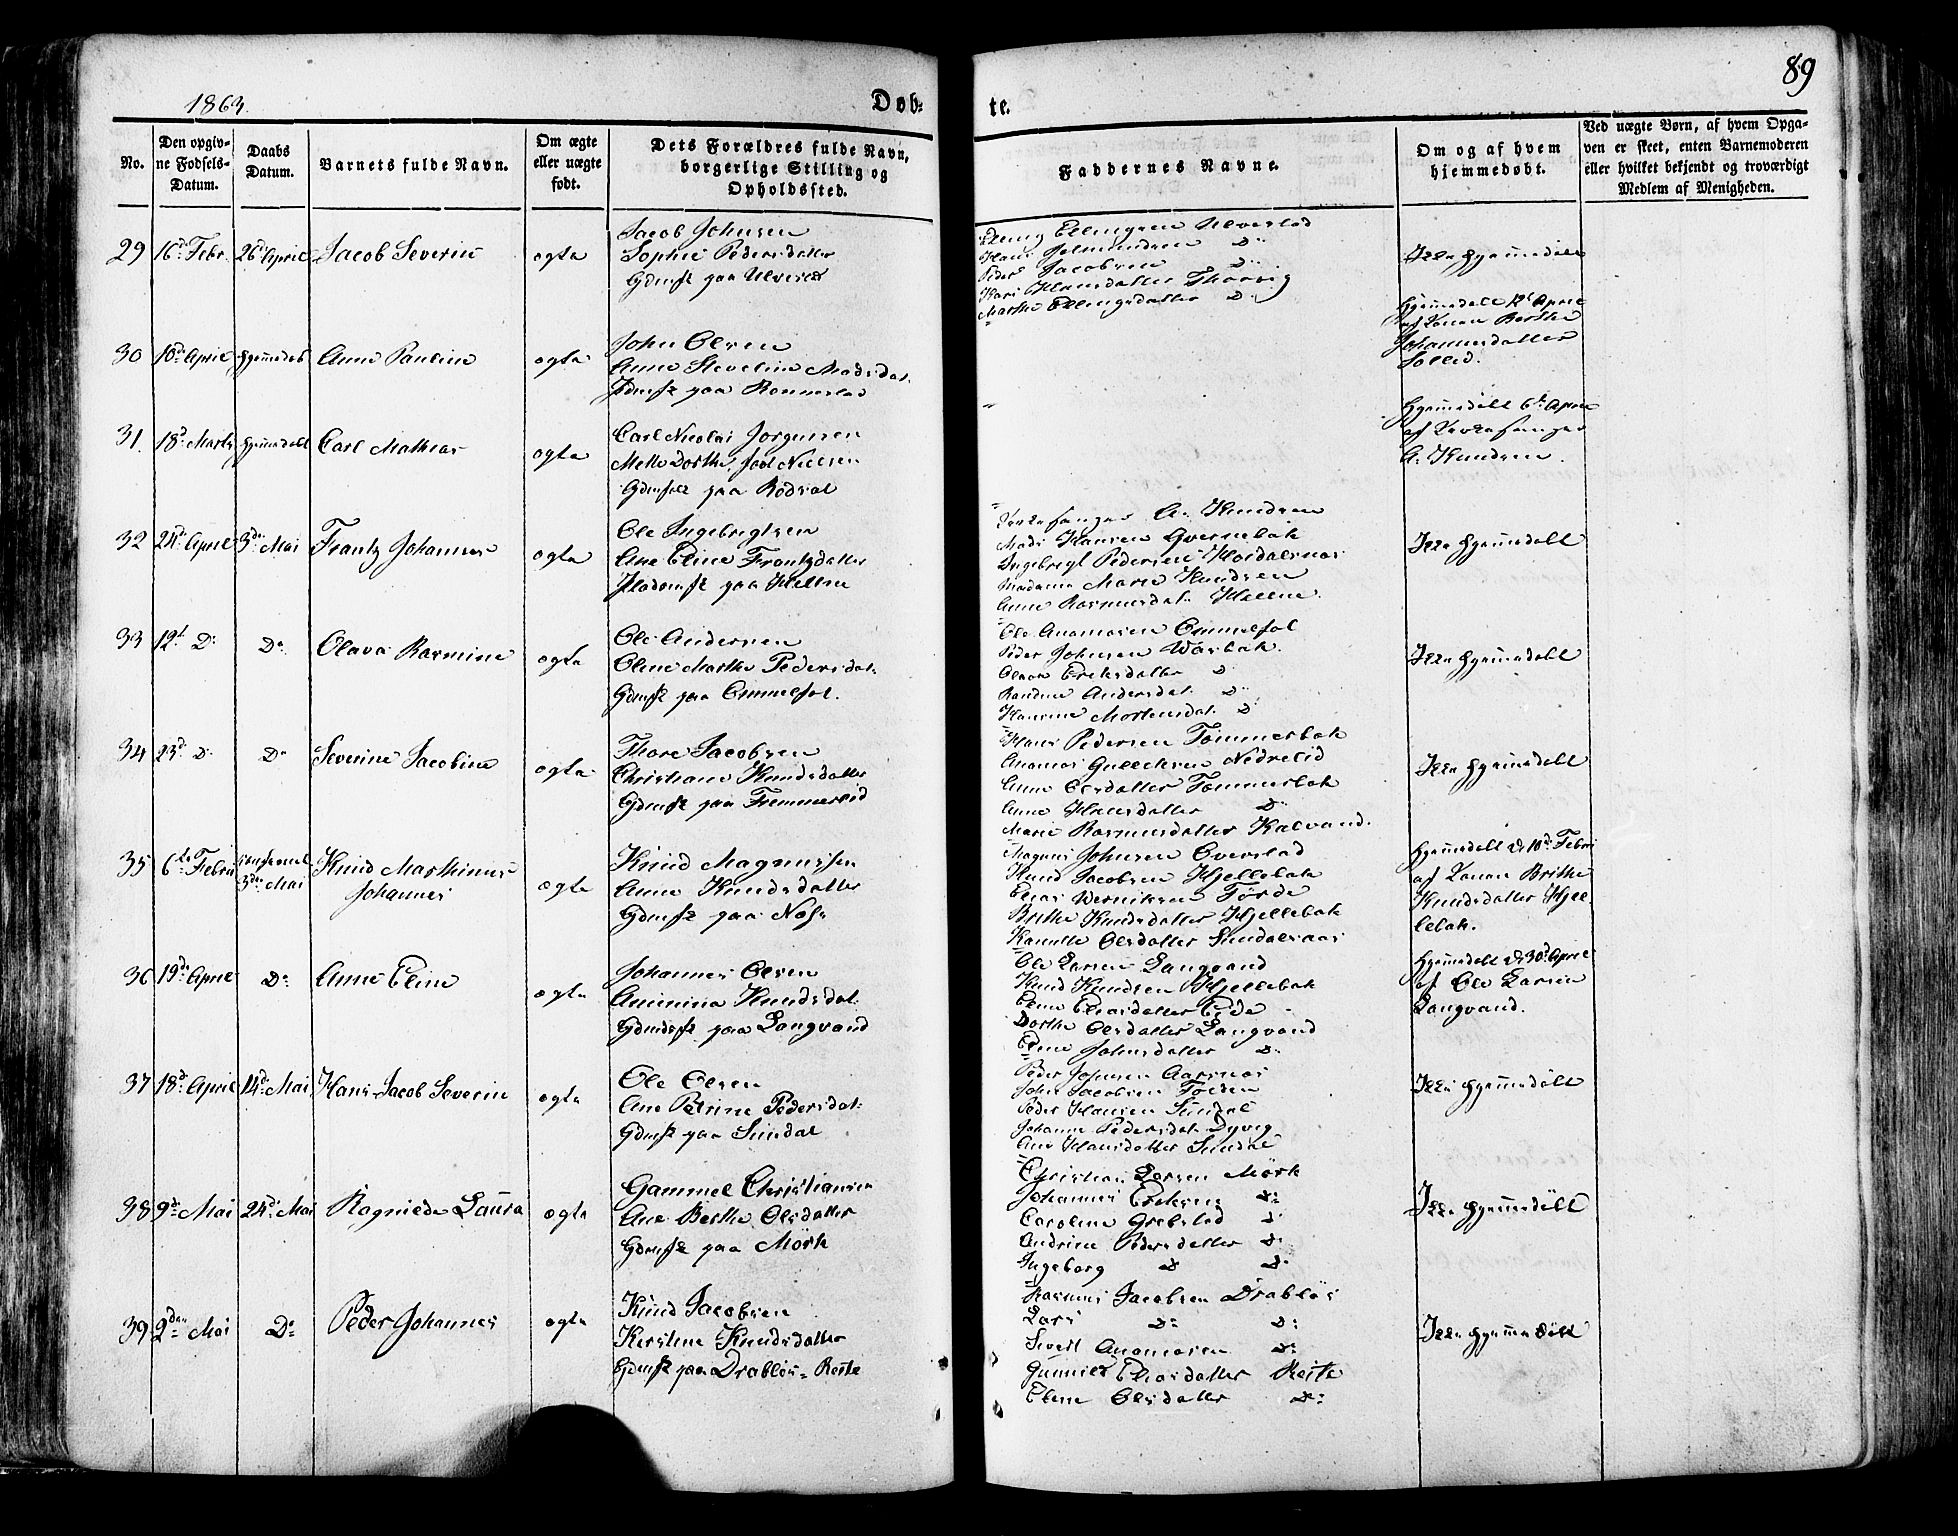 89
1863.
Døb-
te.
No.
Den opgiv-
ne Fødsels-
Datum.
Daabs
Datum.
Barnets fulde Navn.
Om ægte
eller uægte
født.
Dets Forældres fulde Navn,
borgerlige Stilling og
Opholdssted.
Faddernes Navne.
Om og af hvem
hjemmedøbt.
Ved uægte Børn, af hvem Opga-
ven er skeet, enten Barnemoderen
eller hvilket bekjendt og troværdigt
Medlem af Menigheden.
29 16d Febr. 26d April Jacob Severin ægte
Jacob Johnsen
Sophie Pedersdatter
Gdmfk paa Ulvestad
Elling Ellingsen Ulvestad
Peder Jacobsen D:
Kari Hansdatter
Marthe Ellingsdatter D:
Ikke hjemmedøbt
30 10d April hjemmedøb Anne Pauline ægte
John Olsen
Anne Steveline Madsdat.
Gdmfk paa Rønnestad
Hjemmedøbt 12d April
af Konen Berthe
Johannesdatter
Sollid.
31. 18d Marts hjemmedøbt Carl Mathias ægte
Carl Nicolai Jørgensen
Mette Dorthe, født Nielsen
Gdmfk paa Rødsæt
Hjemmedøbt 6te April
af Kirkesanger
A. Knudsen.
32 24d April 3die Mai Frantz Johannes ægte
Ole Ingebrigtsen
Ane Eline Frantzdatter
Pladsmfk paa Hellene
Kirkesanger A. Knudsen
Mads Hansen Qvernebak
Ingebrigt Pedersen
Madame Marie Knudsen
Anne Rasmusdat. Hellene.
Ikke hjemmedøbt
33 19d D: D: Olava Rasmine ægte
Ole Andersen
Oline Marthe Pedersdat.
Gdmfk paa Emmelsæt.
Ole Anamasen Emmelsæt
Peder Johnsen Watbak
Eriksdatter D
Randine Andersdat. D:
Mortensdat. D
Ikke hjemmedøbt
34 23d D: D: Severine Jacobine ægte
Thore Jacobsen
Christiane Knudsdatter
Gdmfk paa Fremmerlid
Hans Pedersen Tømmerbak
Anamas Gullichsen Nedrelid
Anne Olsdatter Tømmerbak
Anne Hansdatter D:
Marie Rasmusdatter Kalvand.
Ikke hjemmedøbt
35 6te Febru 3die Mai Knud Marthinus
Johannes
ægte
Knud Magnussen
Anne Knudsdatter
Gdmfk paa Næss
Magnus Johnsen Overstad
Knud Jacobsen Hjellebak
Elias Werniksen Førde
Brithe Knudsdatter Hjellebak
Olsdatter Sundalsnæs
Hjemmedøbt d. 10d Febru
af Konen Brithe
Knudsdatter Hjel-
lebak.
36 19de April D: Anne Eline ægte
Johannes Olsen
Knudsdat.
Gdmfk paa Langvand
Ole Larsen Langvand
Knud Knudsen Hjellebak
Eliasdatter Eide
Dorthe Olsdatter Langvand
Johnsdatter D.
Hjemmedøbt d. 30d April
af Ole Larsen
Langvand.
37 18d April 14d Mai Hans Jacob Severin ægte
Ole Olsen
Ane Petrine Pedersdat.
Gdmfk paa Sundal
Peder Johnsen Aarsnæs
John Jacobsen
Peder Hansen Sundal
Johanne Pedersdat. Dyvig
Ane Hansdatter Sundal
Ikke hjemmedøbt
38 9de Mai 24d Mai Ragnilde Laura ægte
Gammel Christiansen
Ane Berthe Olsdatter
Gdmfk paa Mørk
Christian Larsen Mørk
Johannes Eriksen D:
Caroline Grebstad D
Andrine Pedersdatter D:
Ingeborg D D:
Ikke hjemmedøbt
39 2den Mai D: Peder Johannes ægte
Knud Jacobsen
Kirstine Knudsdatter
Gdmfk paa Drabløs-Reite
Rasmus Jacobsen Drabløs
Lars D: D:
Sivert Anamasen D:
Gunnild Eliasdatter Reite
Eline Olsdatter D:
Ikke hjemmedøbt